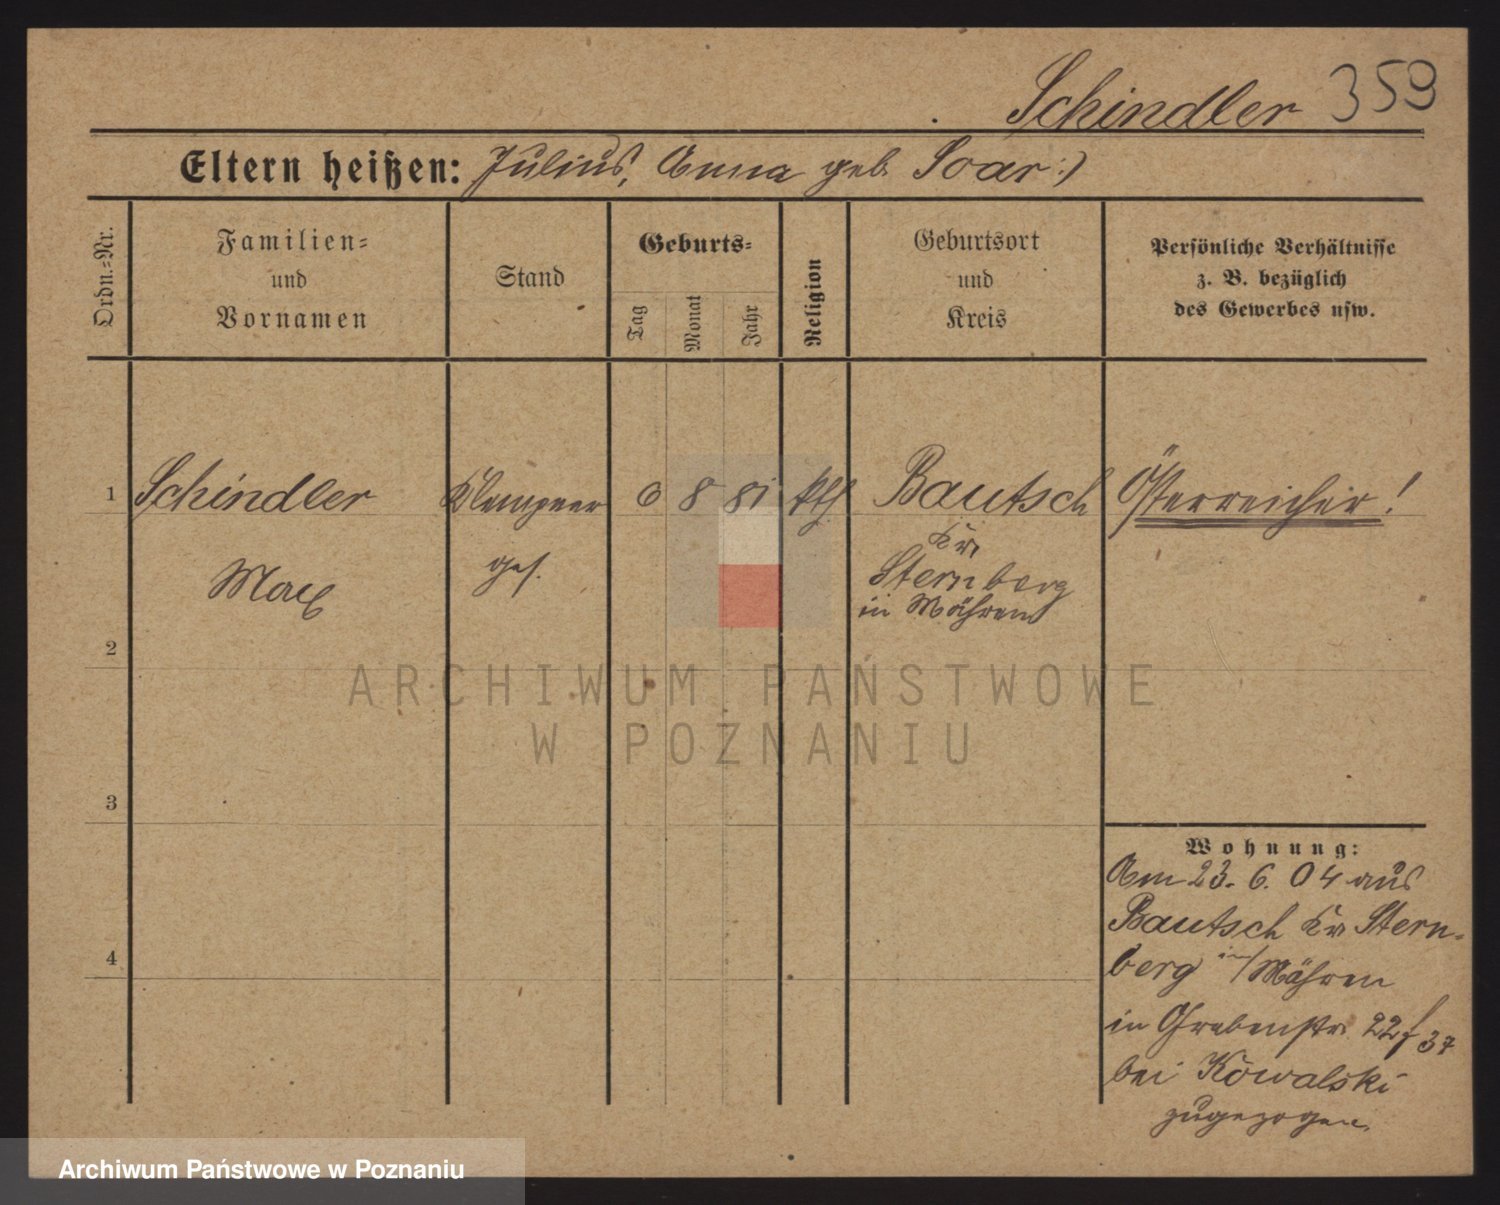 Schindler 359
Eltern heißen: Julius, Anna geb. Soar :)
Ordn.=Nr.
Familien=
und
Vornamen
Stand
Geburts=
Tag
Monat
Jahr
Religion
Geburtsort
und
Kreis
Persönliche Verhältnisse
z. B. bezüglich
des Gewerbes usw.
1 Schindler Klempner 6 8 81 kth Bautsch Österreicher!
Kr.
Max ges. Sternberg
in Mähren
2
3
4
Wohnung:
Am 23. 6. 04 aus
Bautsch Kr Stern-
berg in/Mähren
in Grabenstr. 22
bei Kowalski
zugezogen.
ARCHIWUM PAŃSTWOWE
W POZNANIU
Archiwum Państwowe w Poznaniu